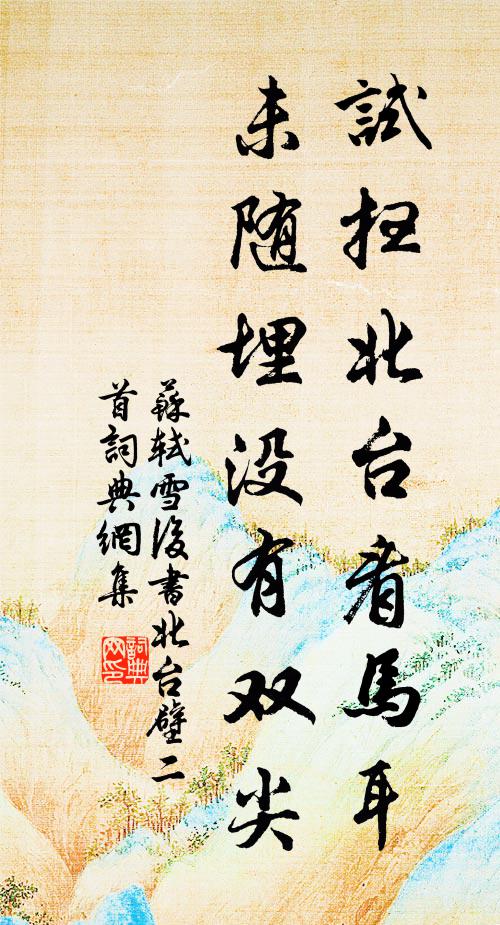 試扫北台看馬耳
未随埋没有双尖
蘇軾雪後書北台壁二
首詞典網集
詞典
网印